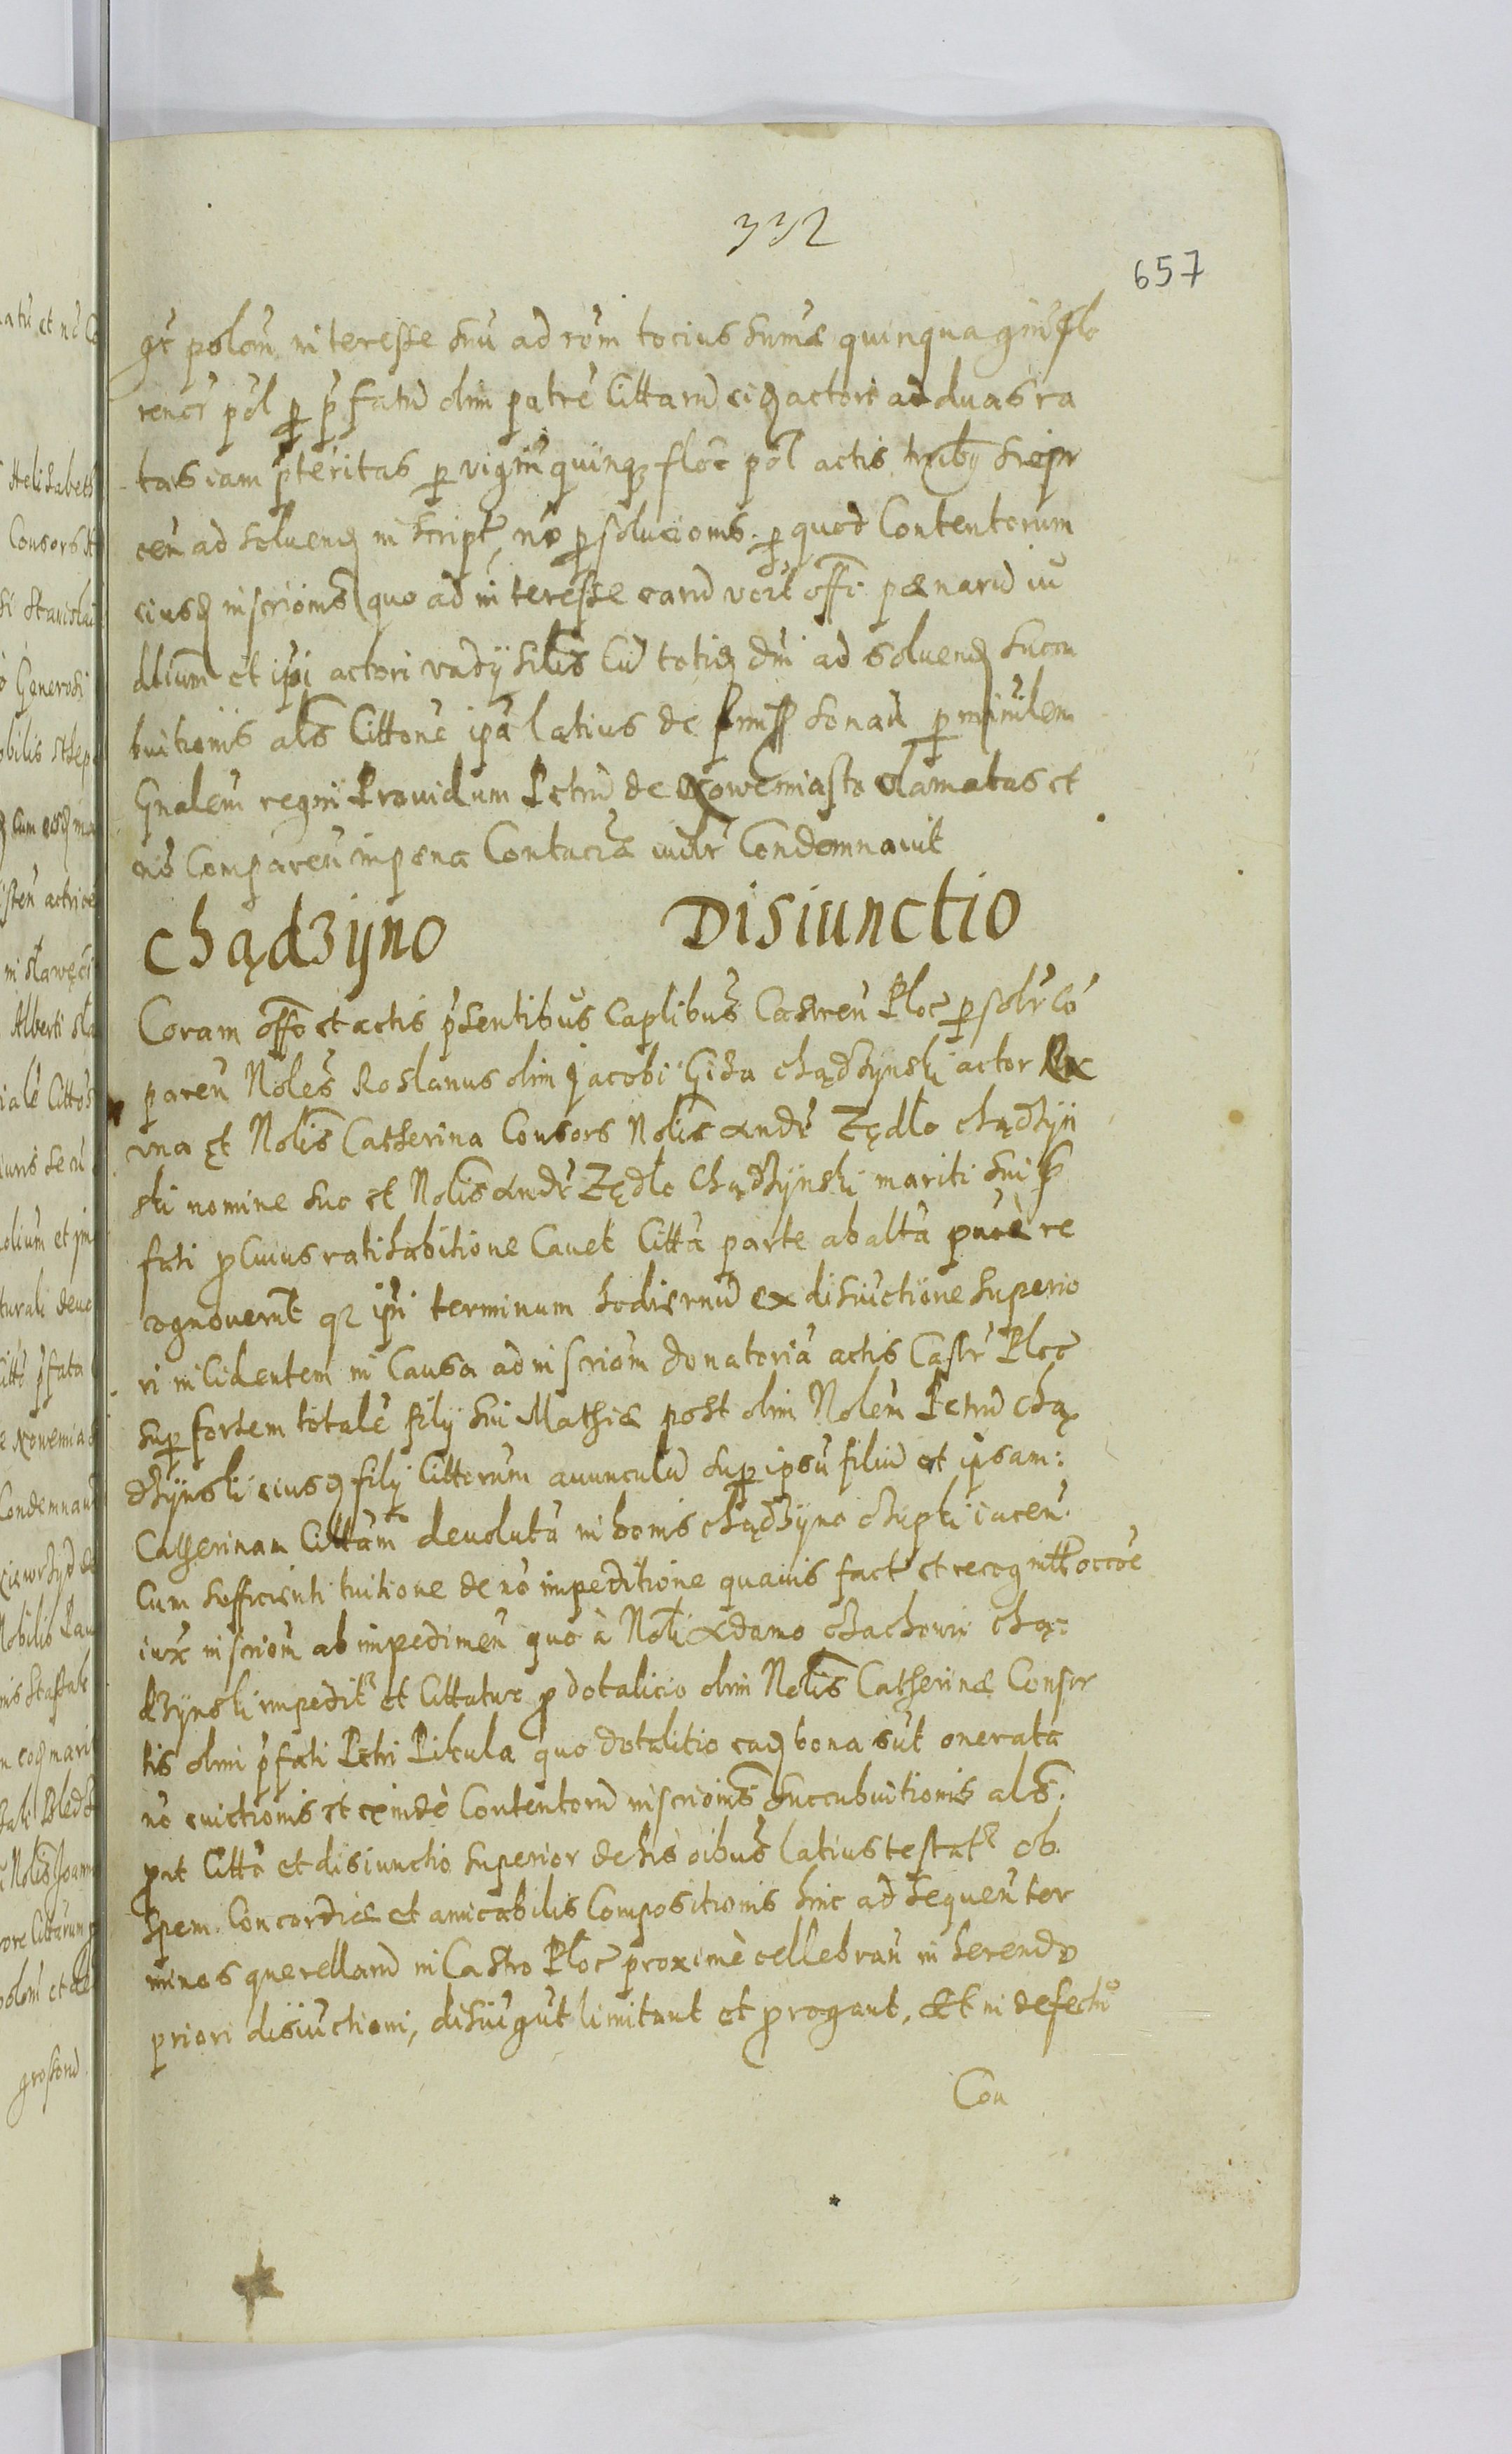 332
657
gr̃ polom̃ interesse suũ ad rõm tocius sumæ quinquagint̃ flo
renor̃ pol̃ per p̃fatũ olim patrẽ Cittatũ eidẽ actori ad duas ra
tas iam p̃teritas per vigint̃ quinqꝫ floꝛ̃ pol̃
ceñ ad solvend̃ inscript̃, nõ persolucionis. per quod Contentorum
eiusd̃ inscriõnis quo ad interesse earũ vert̃ offi: pænarũ iu
dicium̃ et ip̃i actori vadÿ sit̃is Cũ totid̃ dñi ad solvend̃ succu
buitionis al̃s Cittõne ip̃a latius de p̃miss̃ sonañ per ministem̃
Gnalem̃ regni Providum Petrũ de Nowemiasto clamatas et
nõ Compareñ in pœna Contuciæ iudr̃ Condemnavit
Chądzÿno Disiunctio
Coram offõ et actis p̃sentibus Caplibus̃ Castreñ Ploc̃ personlr̃ Cõ
pareñ Noles̃ Roslanus olim Jacobi Giza Chądzÿnski actor Ex
una et Nolis̃ Catherina Consors Nolis̃ Andr̃ Zędlo Chądzÿn
ski nomine suo et Nolis̃ Andr̃ Zędlo Chądzÿnski mariti sui p̃
fati p̃ Cuius ratihabitione Cavet Citta parte ab alta parte re
cognoverũt qꝫ ip̃i terminum hodiernũ ex disiũctione superio
ri incidentem in Causa ad inscriõm donatoriã actis Castr̃ Ploc̃
super sortem totalẽ filÿ sui Mathiæ post olim Nolem̃ Petrũ Chą
dzÿnski eiusd̃ filÿ Cittorum avunculũ super ipsũ filiũ et ipsam:
Catherinam Cittam devolutã in bonis Chądzÿno Chupki iaceñ.
Cum sufficienti tuitione de nõ impeditione quavis fact̃ et recognit̃ occõe
iurẽ inscriõm ab impedimeñ quo à Noli Adamo Chachowic Chą:
dzÿnski impedit̃ et Cittatur p̃ dotalicio olim Nolis̃ Catherinæ Consor
tis olim p̃fati Petri Pikula quo dotalitio ead̃ bona sũt onerata
nõ evictionis et exindẽ Contentorũ inscriõnis̃ Succubuitionis al̃s:
prut Citto et disiunctio superior de his oibus̃ latius testat̃ ob
spem Concordiæ et amicabilis Compositionis hinc ad sequeñ ter
minos querellarũ in Castro Ploc̃ proximè cellebrañ in herendo
priori disiũctioni, disiũgũt limitant et prorogant, Et in defectu
Con